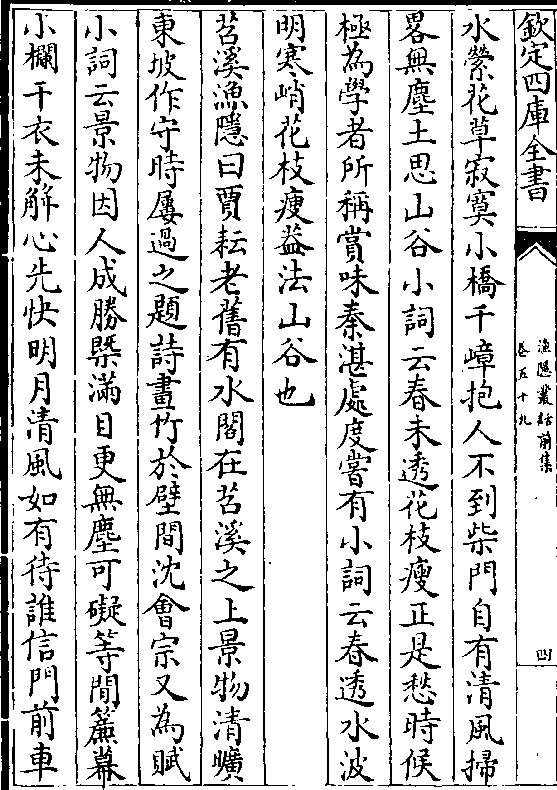 欽定四庫全書
漁隱叢話前集
卷五十九
四
水縈花草寂寞小橋千嶂抱人不到柴門自有清風掃
畧無塵土思山谷小詞云春未透花枝瘦正是愁時候
極為學者所稱賞味秦湛處度嘗有小詞云春透水波
明寒峭花枝瘦葢法山谷也
苕溪漁隱曰賈耘老舊有水閣在苕溪之上景物清曠
東坡作守時屢過之題詩畫竹於壁間沈會宗又為賦
小詞云景物因人成勝槩滿目更無塵可礙等閒簾幕
小欄干衣未解心先快明月清風如有待誰信門前車